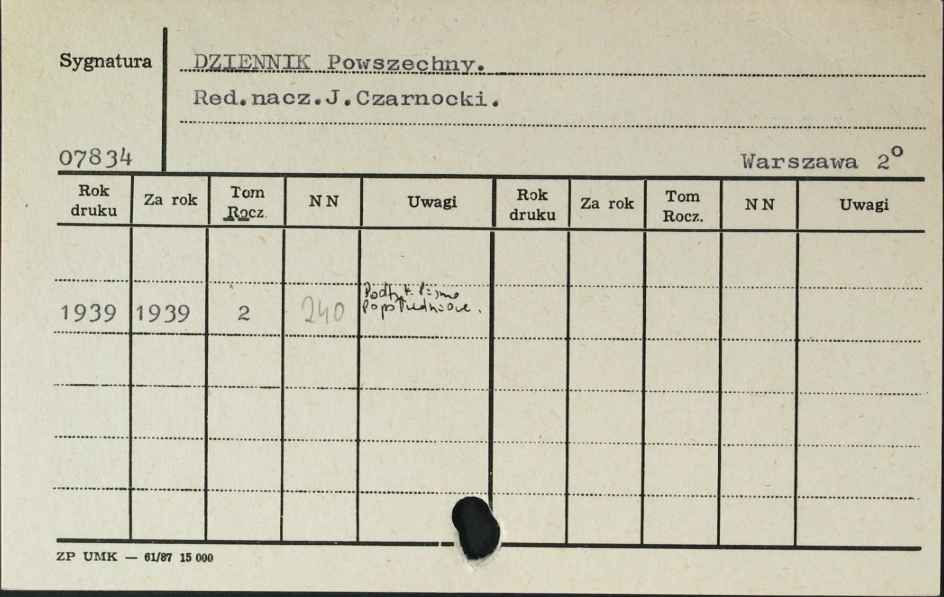 Sygnatura
DZIENNIK Powszechny.
Red.nacz.J.Czarnocki.
07834
Warszawa 2°
Rok druku Za rok Tom Rocz. NN Uwagi Rok druku Za rok Tom Rocz. NN Uwagi
Podtyt. Pismo
1939 1939 2 240 Popołudniowe.
ZP UMK — 61/87 15 000